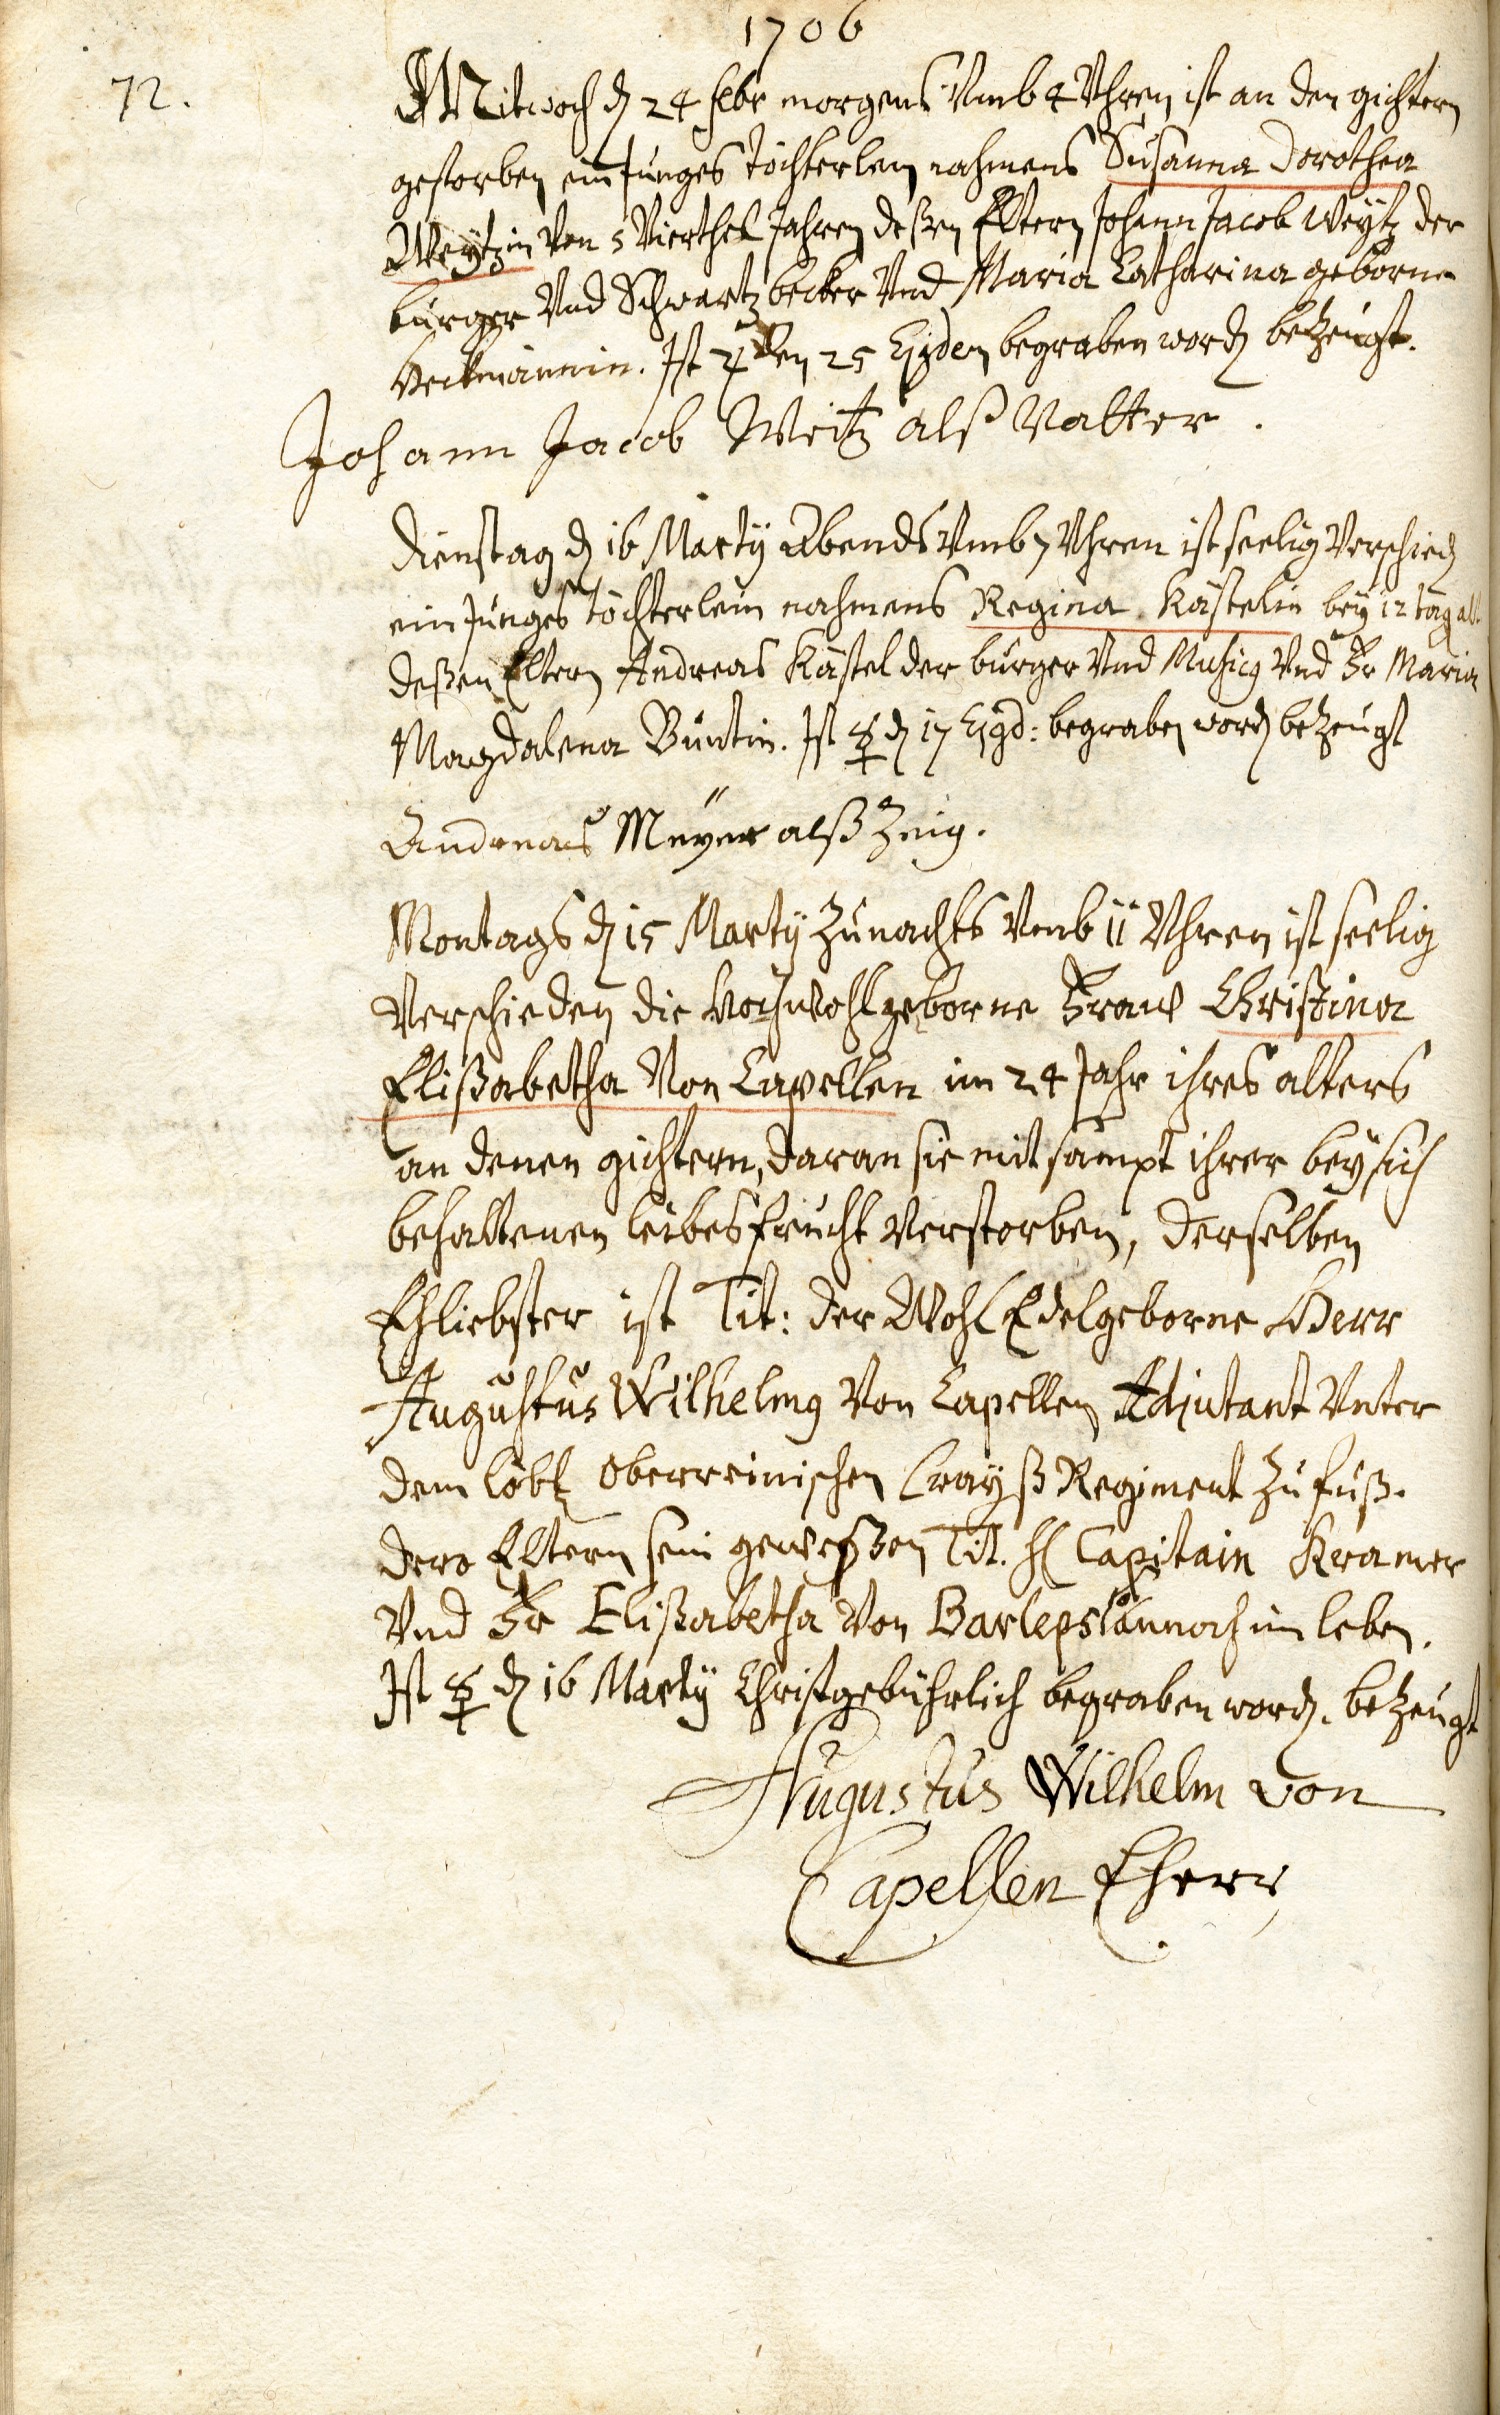 1706
72.
Mitwoch d 24 febr morgens Vmb 4 Vhren ist an den gichtern
gestorben ein Junges töchterlein nahmens Susanna Dorothea
Weytzin Von 5 Vierthel Jahren deßen Eltern Johann Jacob Weytz der
burger Vnd Schwartzbecker Vnd Maria Catharina geborne
Heckmännin. Ist ♃ den 25 Ejgden begraben word betzeugt.
Johann Jacob Weitz alß Vatter.
Dienstag d 16 Marty Abends Vmb 7 Vhren ist seelig Verschied
ein Junges töchterlein nahmens Regina Kästelin bey 12 tag alt.
deßen Eltern Andreas Kästel der burger Vnd Musicg Vnd Fr Maria
Magdalena Büntin. Ist d 17 Ejgd: begraben word betzeugt
Andreas Meyer alß Zeig.
Montags d 15 Marty zu nachts Vmb 11 Vhren ist seelig
Verschieden die Hochwohlgeborne Fraw Christina
Elißabetha Von Capellen im 24 Jahr ihres alters
an denen gichtern, daran sie mit sampt ihrer bey sich
behaltenen leibesfrucht Verstorben, derselben
Ehliebster ist Tit: der WohlEdelgeborne Herr
Augustus Wilhelmg Von Capellen Adjutant Vnter
dem löbl oberreinischen Crayß Regiment zu fuß.
dero Eltern sein geweßen Tit. H Capitain Kramer
Vnd Fr Elißabetha Von Barleps annoch im leben.
Ist d 16 Marty Christgebührlich begraben word. betzeugt
Augustus Wilhelm von
Capellen Eherr